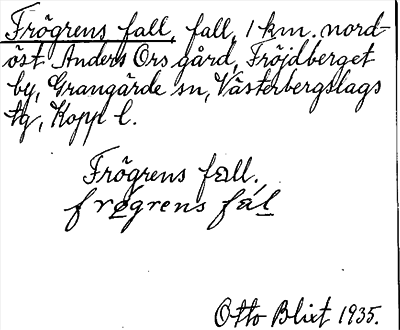 Frögrens fall, fall, 1 km. nord-
öst Anders Ors gård, Fröjdberget
by, Grangärde sn, Västerbergslags
tg, Kopp l.
Frögrens fall.
frøgrens fál
Otto Blixt 1935.